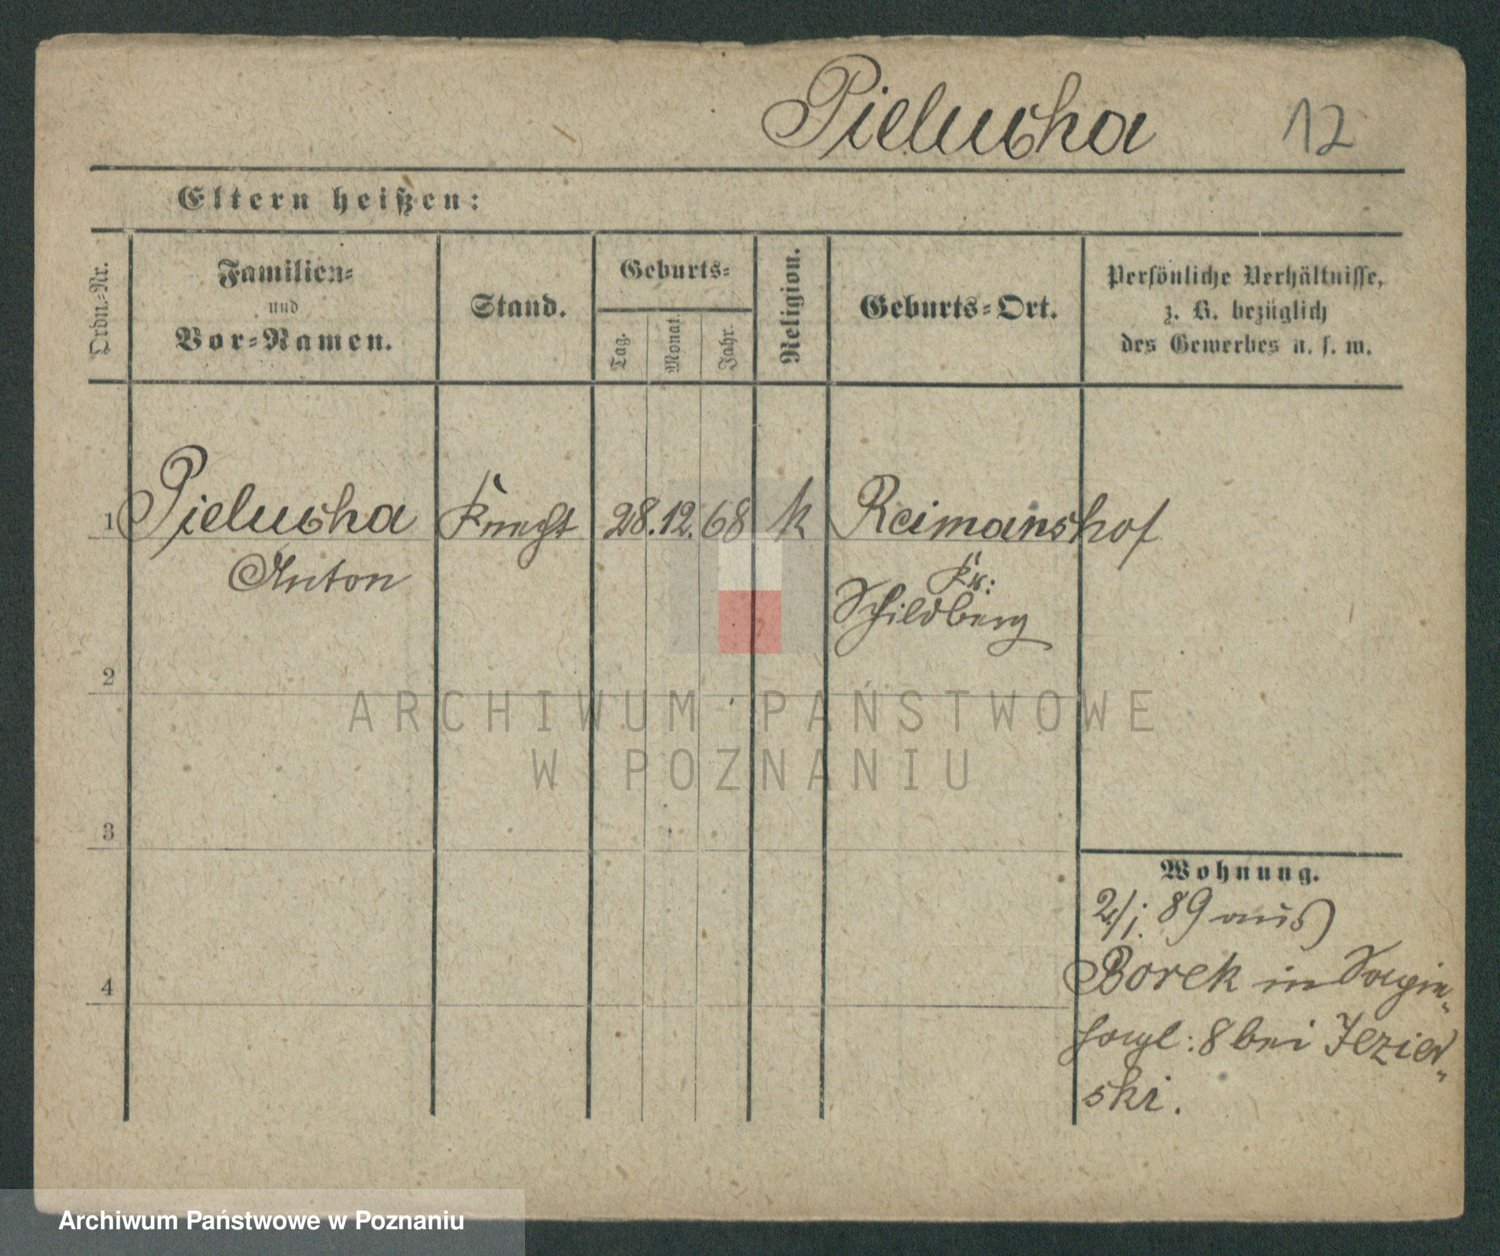 Pielucha 12
Eltern heißen:
Ordn.-Nr.
Familien-
und
Vor-Namen.
Stand.
Geburts-
Tag.
Monat.
Jahr.
Religion.
Geburts-Ort.
Persönliche Verhältnisse,
z. B. bezüglich
des Gewerbes u. s. w.
1 Pielucha Knecht 28. 12. 68 k Reimanshof
Anton
Kr:
Schildberg
2
3
4
Wohnung.
2/1. 89 aus
Borek in
8 bei Jezier-
ski.
ARCHIWUM PAŃSTWOWE
W POZNANIU
Archiwum Państwowe w Poznaniu